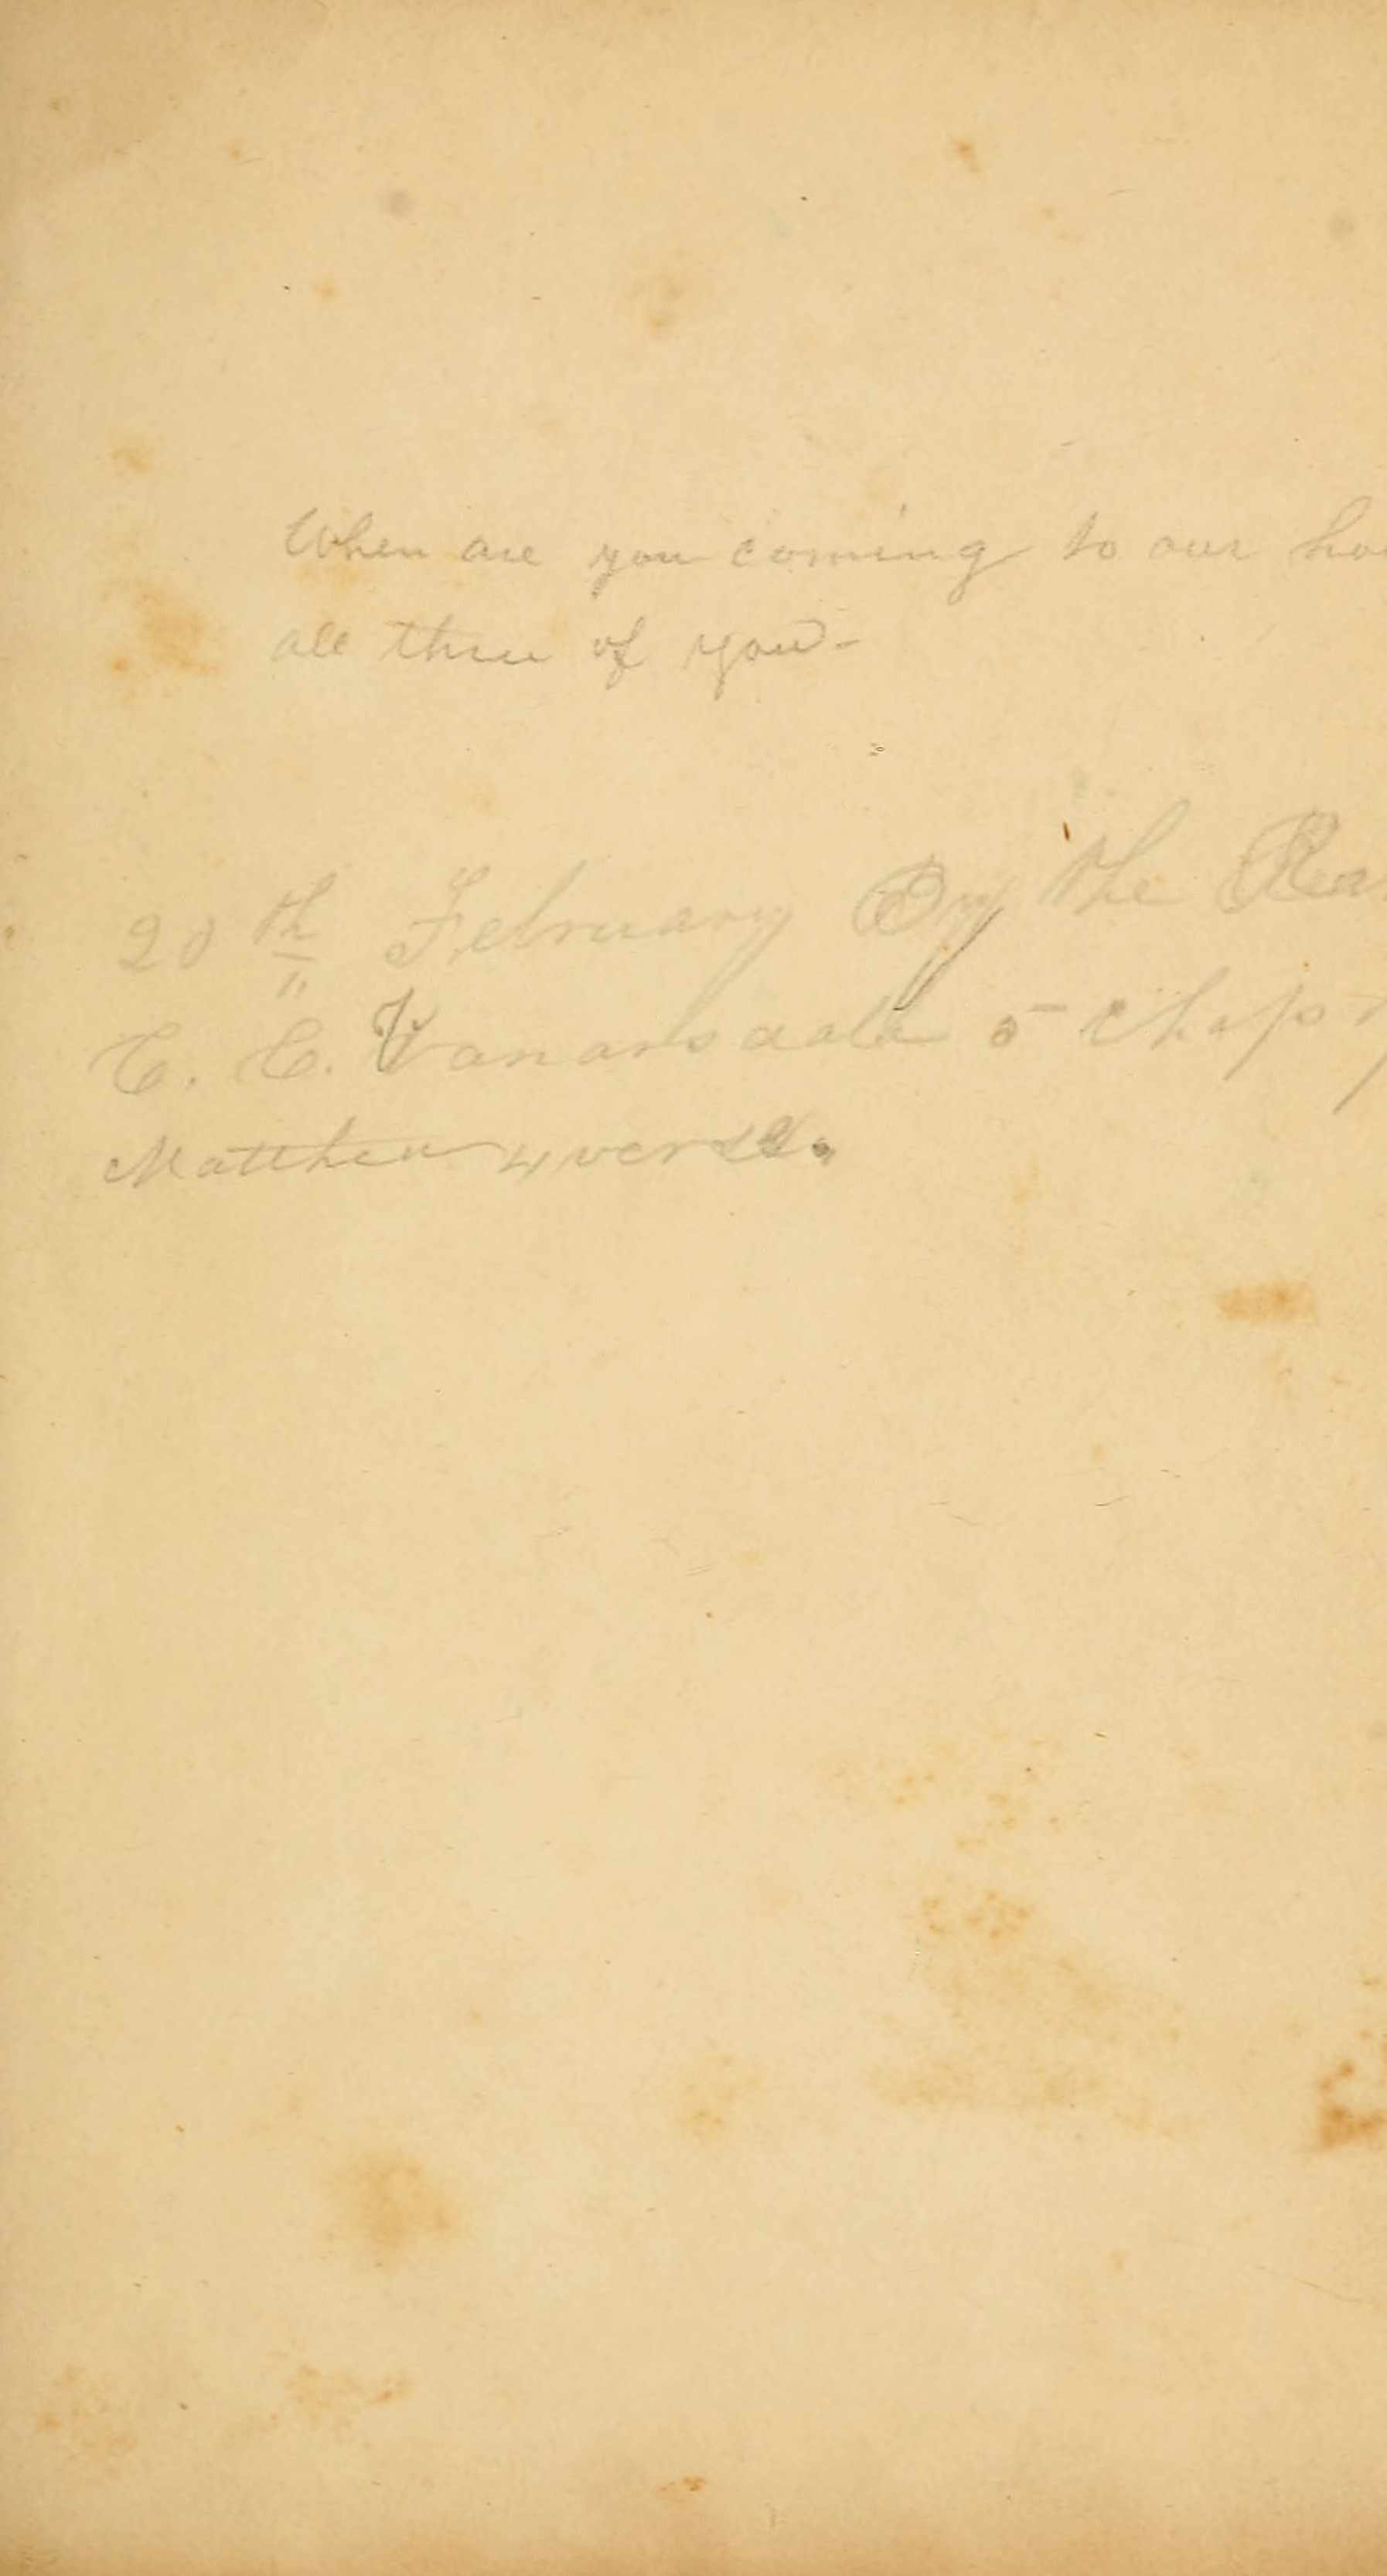 When are you coming to our ho
all three of you-
20th February By the Rev
C. C. Vanarsdale 5 Chap
Matthew 4 verse.